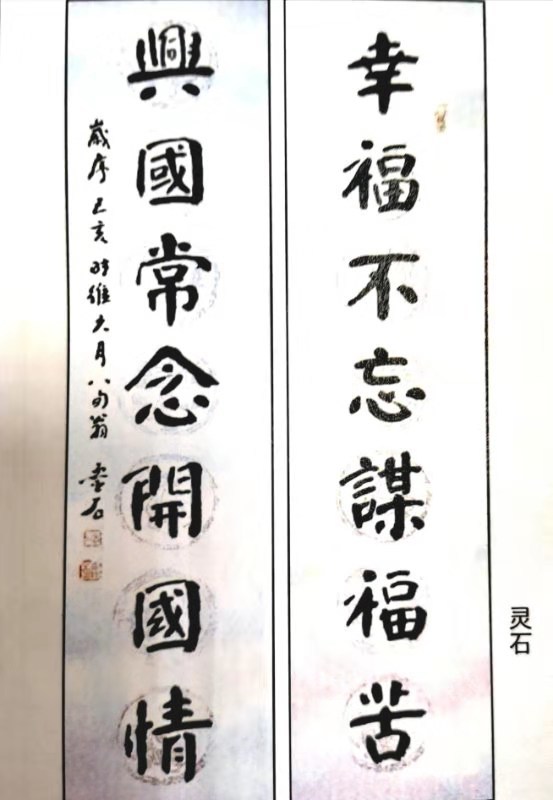 幸福不忘謀福苦
興國常念開國情
歲序己亥時維六月八旬翁壺石
灵石